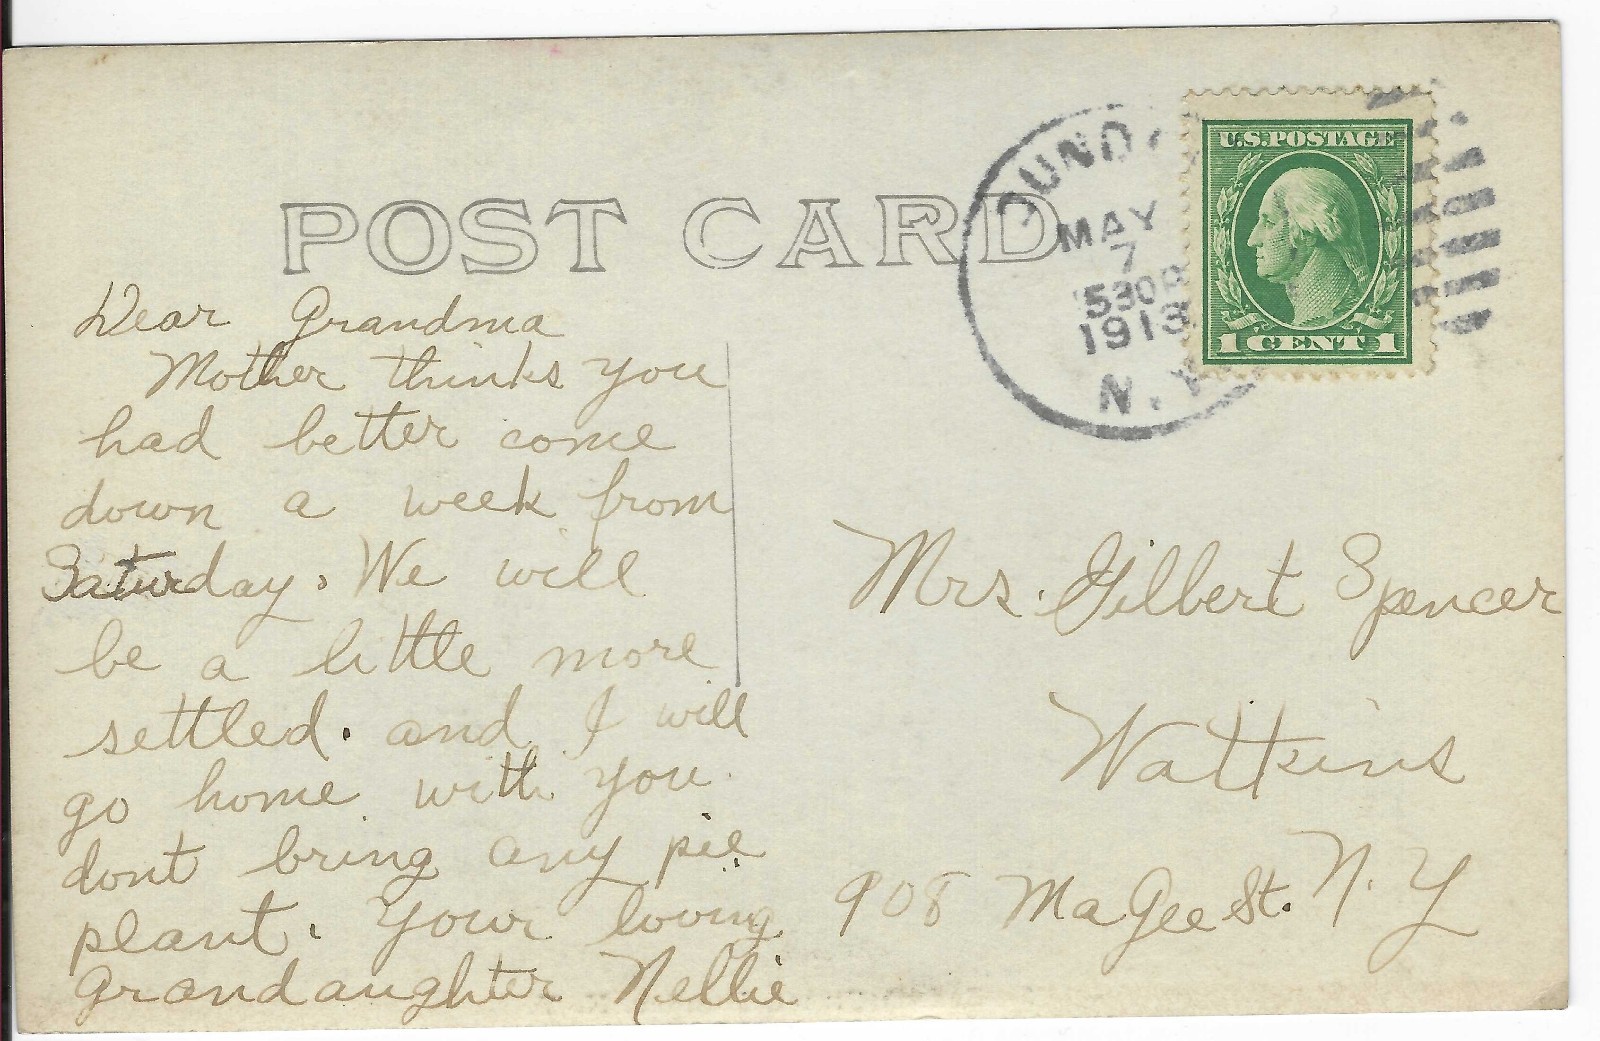 POST CARD
DUND
MAY
7
530P
1913
N.Y.
U.S.POSTAGE
1 CENT 1
Dear Grandma
Mother thinks you
had better come
down a week from
Saturday. We will
be a little more
settled. and I will
go home with you.
dont bring any pie
plant. Your loving
Grandaughter Nellie
Mrs. Gilbert Spencer
Watkins
908 MaGee St. N.Y